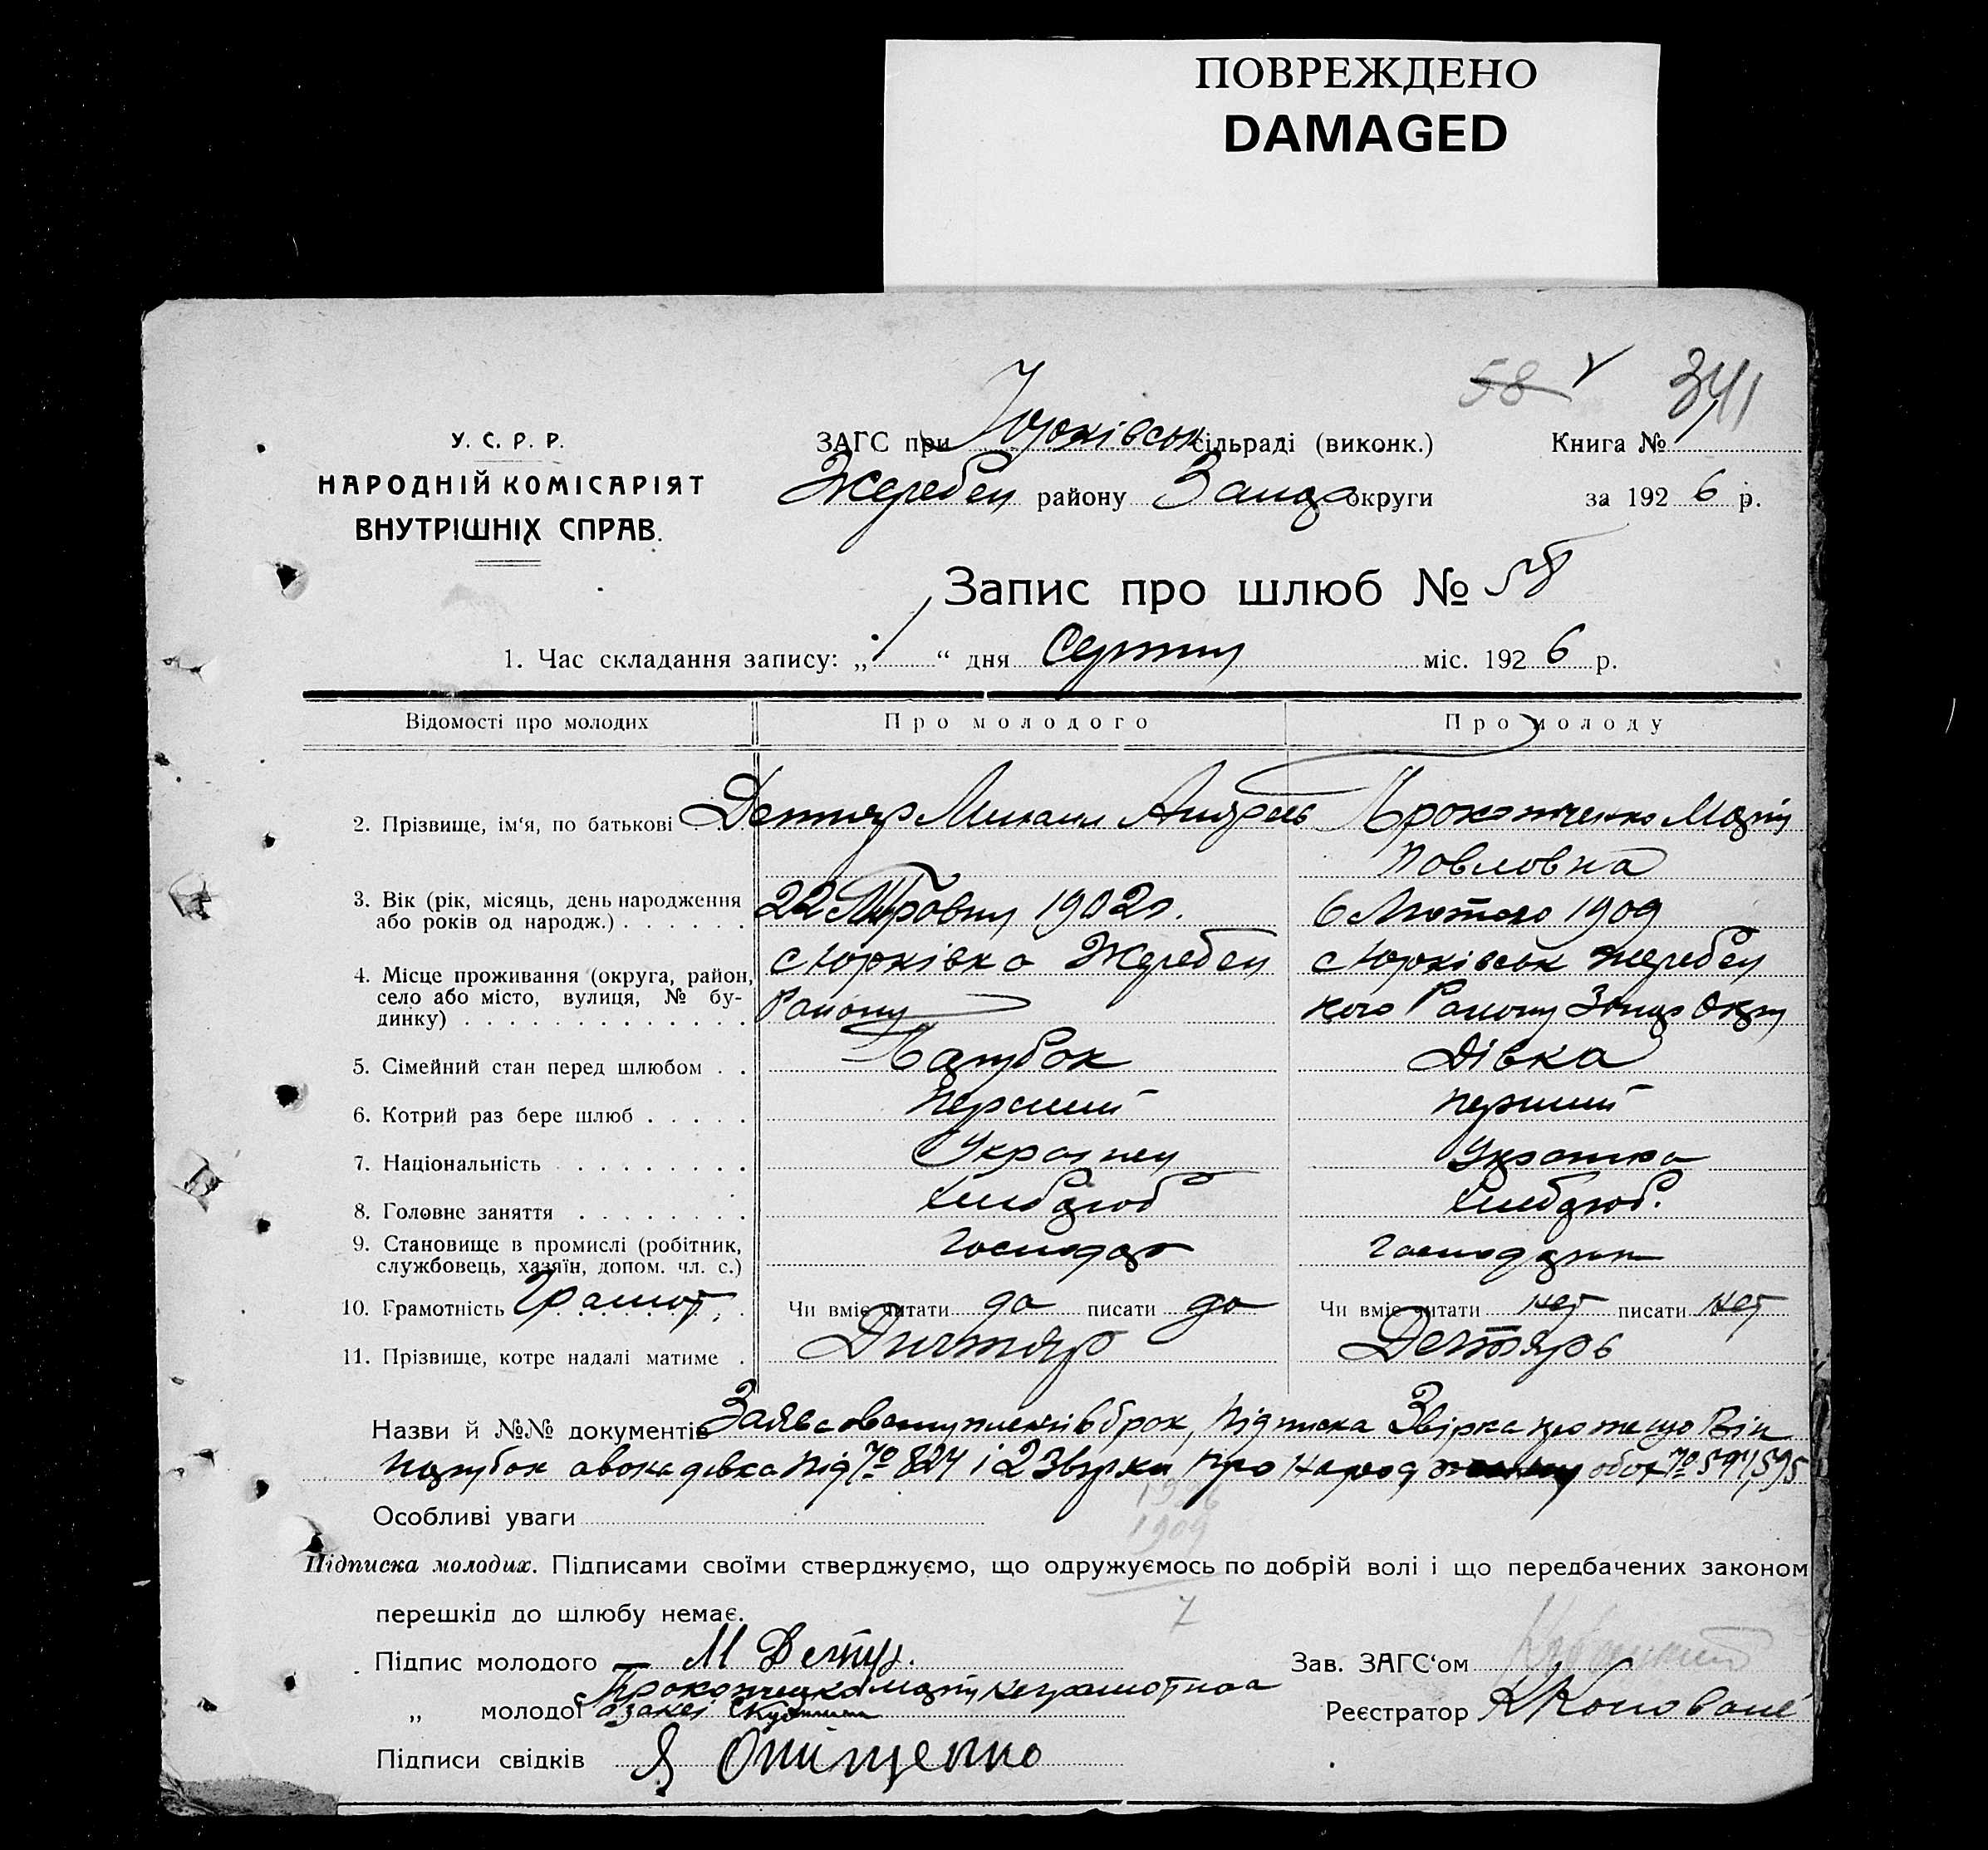 ПОВРЕЖДЕНО
DAMAGED
58 341
У. С. Р. Р.
НАРОДНІЙ КОМІСАРІЯТ
ВНУТРІШНІХ СПРАВ.
ЗАГС при Юрківськ сільраді (виконк.) Книга №
Жеребец району Запор округи за 1926 р.
Запис про шлюб № 58
1. Час складання запису: „1“ дня Серпня міс. 1926 р.
Відомості про молодих Про молодого Про молоду
2. Прізвище, ім'я, по батькові Дегтяр Михаил Андреев Прокопченко Марія
Повловна
3. Вік (рік, місяць, день народження або років од народж.) 22 1902 р. 6 Лютого 1909
4. Місце проживання (округа, район, село або місто, вулиця, № будинку) с Юрківка Жеребец с Юрківськ жеребец
Району кого Району Запор Окру
5. Сімейний стан перед шлюбом Парубок Дівка
6. Котрий раз бере шлюб Перший перший
7. Національність Українец Українка
8. Головне заняття Хлибороб Хлибороб.
9. Становище в промислі (робітник, службовець, хазяїн, допом. чл. с.) Господар
10. Грамотність Грамот. Чи вміє читати да писати да Чи вміє читати нет писати нет
11. Прізвище, котре надалі матиме Дигтяр Дегтярь
Назви й №№ документів Заява брак, Підписка Звірка про те що Він
парубок а вона дівка під № 824 і 2 Звірки про народ № 594, 595
Особливі уваги
1926
1909
7
Підписка молодих. Підписами своїми стверджуємо, що одружуємось по добрій волі і що передбачених законом
перешкід до шлюбу немає.
Підпис молодого М Дегтяр. Зав. ЗАГС'ом
„ молодої Прокопченко Марія неграмотная
а за неї Реєстратор
Підписи свідків Оніщенко